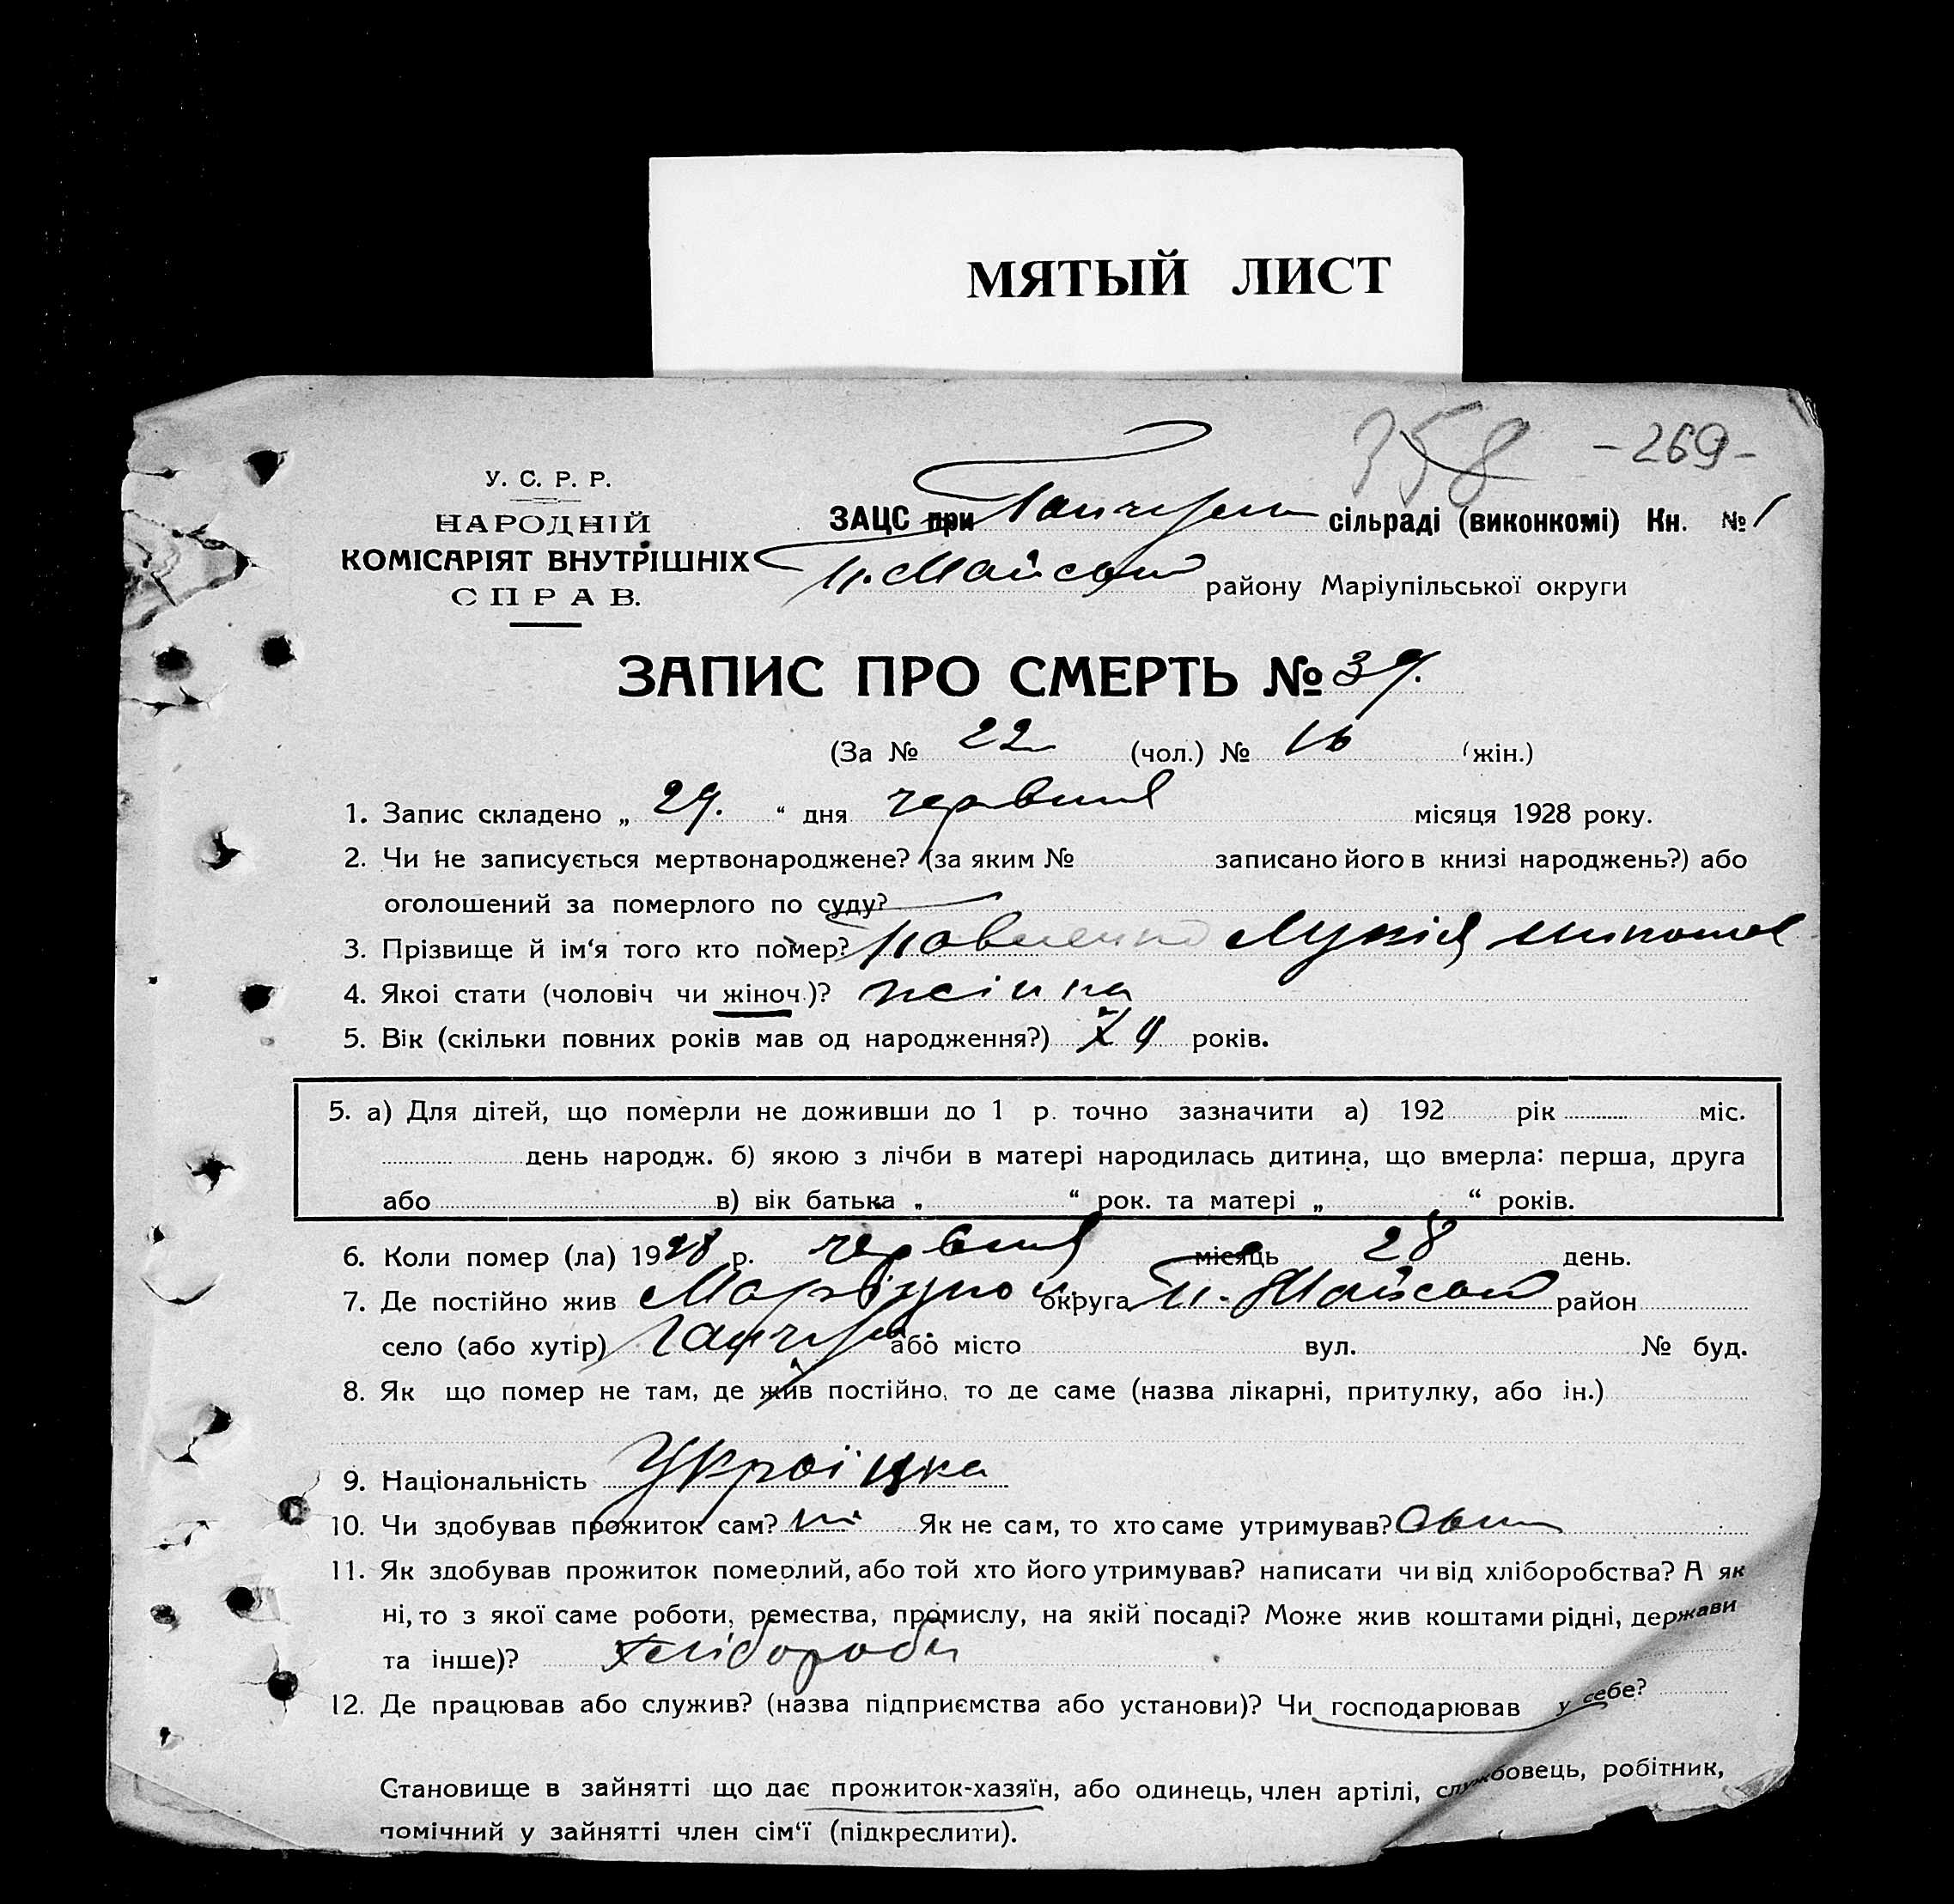 МЯТЫЙ ЛИСТ
358 -269-
У. С. Р. Р.
НАРОДНІЙ
КОМІСАРІЯТ ВНУТРІШНІХ
СПРАВ.
ЗАЦС при сільраді (виконкомі) Кн. № 1
П. Майськ району Маріупільської округи
ЗАПИС ПРО СМЕРТЬ № 39.
(За № 22 (чол.) № 16 (жін.)
1. Запис складено „ 29. “ дня червня місяця 1928 року.
2. Чи не записується мертвонароджене? (за яким № записано його в книзі народжень?) або
оголошений за померлого по суду?
3. Прізвище й ім‘я того кто помер? Павленко Лукія
4. Якої стати (чоловіч чи жіноч.)? жінка
5. Вік (скільки повних років мав од народження?) років.
5. а) Для дітей, що померли не доживши до 1 р. точно зазначити а) 192 рік міс.
день народж. б) якою з лічби в матері народилась дитина, що вмерла: перша, друга
або в) вік батька „ “ рок. та матері „ “ років.
6. Коли помер (ла) 1928 р. червня місяць 28 день.
7. Де постійно жив Маріупол. округа П. Майськ район
село (або хутір) або місто вул. № буд.
8. Як що помер не там, де жив постійно, то де саме (назва лікарні, притулку, або ін.)
9. Національність Українка
10. Чи здобував прожиток сам? ні Як не сам, то хто саме утримував? Син
11. Як здобував прожиток померлий, або той хто його утримував? написати чи від хліборобства? А як
ні, то з якої саме роботи, ремества, промислу, на якій посаді? Може жив коштами рідні, держави
та інше)? Хлібороби
12. Де працював або служив? (назва підприємства або установи)? Чи господарював у себе?
Становище в зайнятті що дає прожиток-хазяїн, або одинець, член артілі, службовець, робітник,
помічний у зайнятті член сім‘ї (підкреслити).